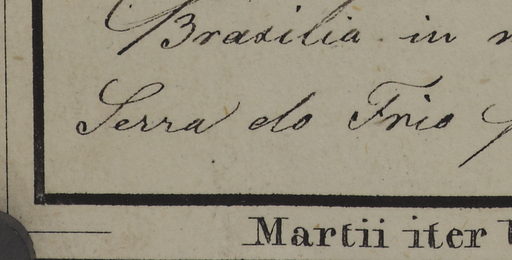 Brasilia in
Serra do Frio
Martii iter